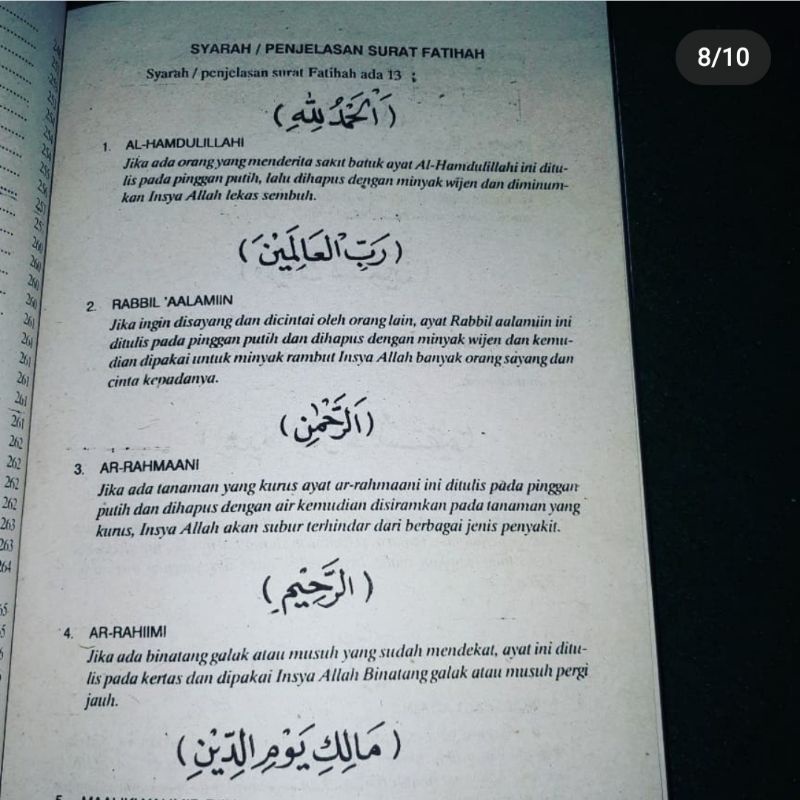 8/10
SYARAH / PENJELASAN SURAT FATIHAH
Syarah / penjelasan surat Fatihah ada 13 :
(اَلْحَمْدُ لِلّٰهِ)
1. AL-HAMDULILLAHI
Jika ada orang yang menderita sakit batuk ayat Al-Hamdulillahi ini ditu-
lis pada pinggan putih, lalu dihapus dengan minyak wijen dan diminum-
kan Insya Allah lekas sembuh.
(رَبِّ الْعَالَمِيْنَ)
2. RABBIL 'AALAMIIN
Jika ingin disayang dan dicintai oleh orang lain, ayat Rabbil aalamiin ini
ditulis pada pinggan putih dan dihapus dengan minyak wijen dan kemu-
dian dipakai untuk minyak rambut Insya Allah banyak orang sayang dan
cinta kepadanya.
(اَلرَّحْمٰنِ)
3. AR-RAHMAANI
Jika ada tanaman yang kurus ayat ar-rahmaani ini ditulis pada pinggan
putih dan dihapus dengan air kemudian disiramkan pada tanaman yang
kurus, Insya Allah akan subur terhindar dari berbagai jenis penyakit.
(الرَّحِيْمِ)
4. AR-RAHIIMI
Jika ada binatang galak atau musuh yang sudah mendekat, ayat ini ditu-
lis pada kertas dan dipakai Insya Allah Binatang galak atau musuh pergi
jauh.
(مَالِكِ يَوْمِ الدِّيْنِ)
260
260
260
260
261
261
261
261
261
261
262
262
262
262
263
263
264